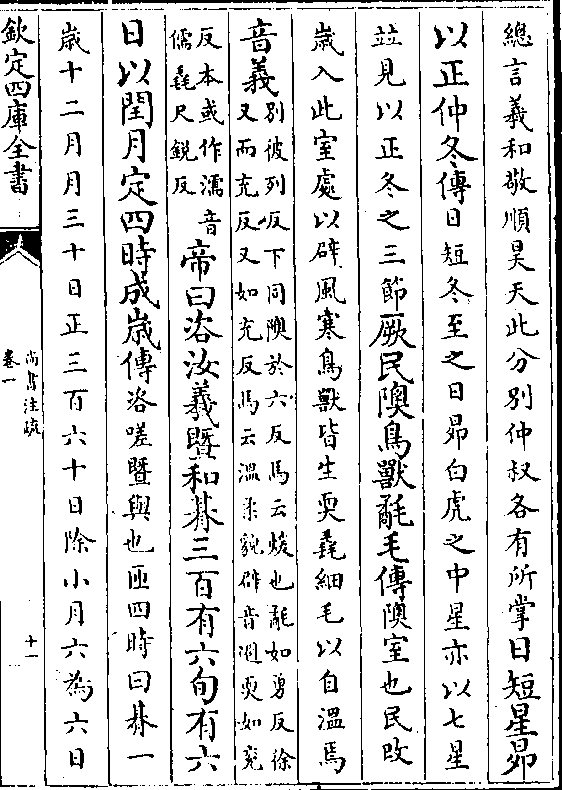 總言羲和敬順昊天此分別仲叔各有所掌日短星昴
以正仲冬傳日短冬至之日昴白虎之中星亦以七星
並見以正冬之三節厥民隩鳥獸氄毛傳隩室也民改
歲入此室處以辟風寒鳥獸皆生耎毳細毛以自溫焉
音義別彼列反下同隩於六反馬云煖也氄如勇反徐
又而充反又如充反馬云溫柔貌辟音避耎如兗
反本或作濡音
儒毳尺銳反
帝曰咨汝羲暨和朞三百有六旬有六
日以閏月定四時成歲傳咨嗟暨與也匝四時曰朞一
歲十二月月三十日正三百六十日除小月六為六日
欽定四庫全書
尚書注疏
卷一
十一